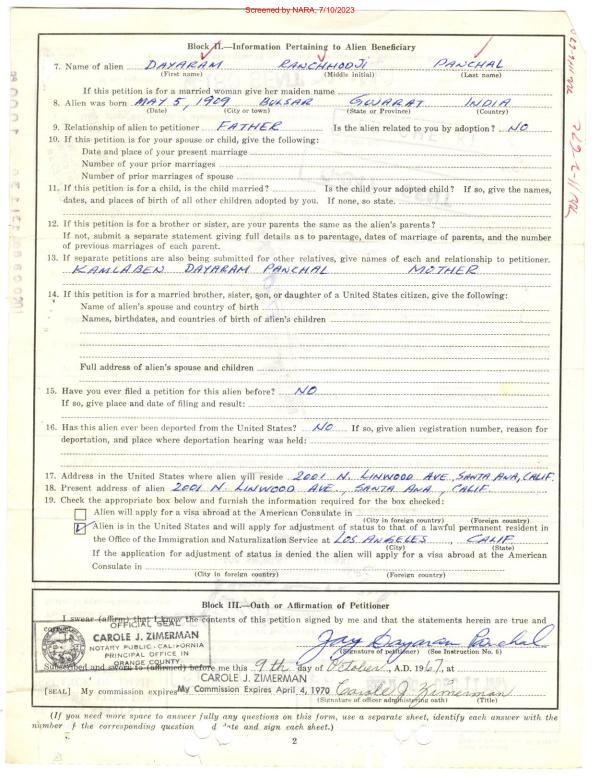 Screened by NARA, 7/10/2023
Block II.—Information Pertaining to Alien Beneficiary
7. Name of alien DAYARAM RANCHHODJI PANCHAL
(First name) (Middle initial) (Last name)
If this petition is for a married woman give her maiden name
8. Alien was born MAY 5, 1909 BULSAR GUJARAT INDIA
(Date) (City or town) (State or Province) (Country)
9. Relationship of alien to petitioner FATHER Is the alien related to you by adoption? NO
10. If this petition is for your spouse or child, give the following:
Date and place of your present marriage
Number of your prior marriages
Number of prior marriages of spouse
11. If this petition is for a child, is the child married? Is the child your adopted child? If so, give the names,
dates, and places of birth of all other children adopted by you. If none, so state.
12. If this petition is for a brother or sister, are your parents the same as the alien's parents?
If not, submit a separate statement giving full details as to parentage, dates of marriage of parents, and the number
of previous marriages of each parent.
13. If separate petitions are also being submitted for other relatives, give names of each and relationship to petitioner.
KAMLABEN DAYARAM PANCHAL MOTHER
14. If this petition is for a married brother, sister, son, or daughter of a United States citizen, give the following:
Name of alien's spouse and country of birth
Names, birthdates, and countries of birth of alien's children
Full address of alien's spouse and children
15. Have you ever filed a petition for this alien before? NO
If so, give place and date of filing and result:
16. Has this alien ever been deported from the United States? NO If so, give alien registration number, reason for
deportation, and place where deportation hearing was held:
17. Address in the United States where alien will reside 2001 N. LINWOOD AVE, SANTA ANA, CALIF.
18. Present address of alien 2001 N. LINWOOD AVE., SANTA ANA, CALIF.
19. Check the appropriate box below and furnish the information required for the box checked:
Alien will apply for a visa abroad at the American Consulate in
(City in foreign country) (Foreign country)
Alien is in the United States and will apply for adjustment of status to that of a lawful permanent resident in
the Office of the Immigration and Naturalization Service at LOS ANGELES, CALIF
(City) (State)
If the application for adjustment of status is denied the alien will apply for a visa abroad at the American
Consulate in
(City in foreign country) (Foreign country)
Block III.—Oath or Affirmation of Petitioner
I swear (affirm) that I know the contents of this petition signed by me and that the statements herein are true and
OFFICIAL SEAL
CAROLE J. ZIMERMAN
NOTARY PUBLIC - CALIFORNIA
PRINCIPAL OFFICE IN
ORANGE COUNTY
Jay Dayaram Panchal
(Signature of petitioner) (See Instruction No. 6)
Subscribed and sworn to (affirmed) before me this 9th day of October, A.D. 1967, at
CAROLE J. ZIMERMAN
[SEAL] My commission expires My Commission Expires April 4, 1970 Carole J Zimerman
(Signature of officer administering oath) (Title)
(If you need more space to answer fully any questions on this form, use a separate sheet, identify each answer with the
number of the corresponding question and date and sign each sheet.)
2